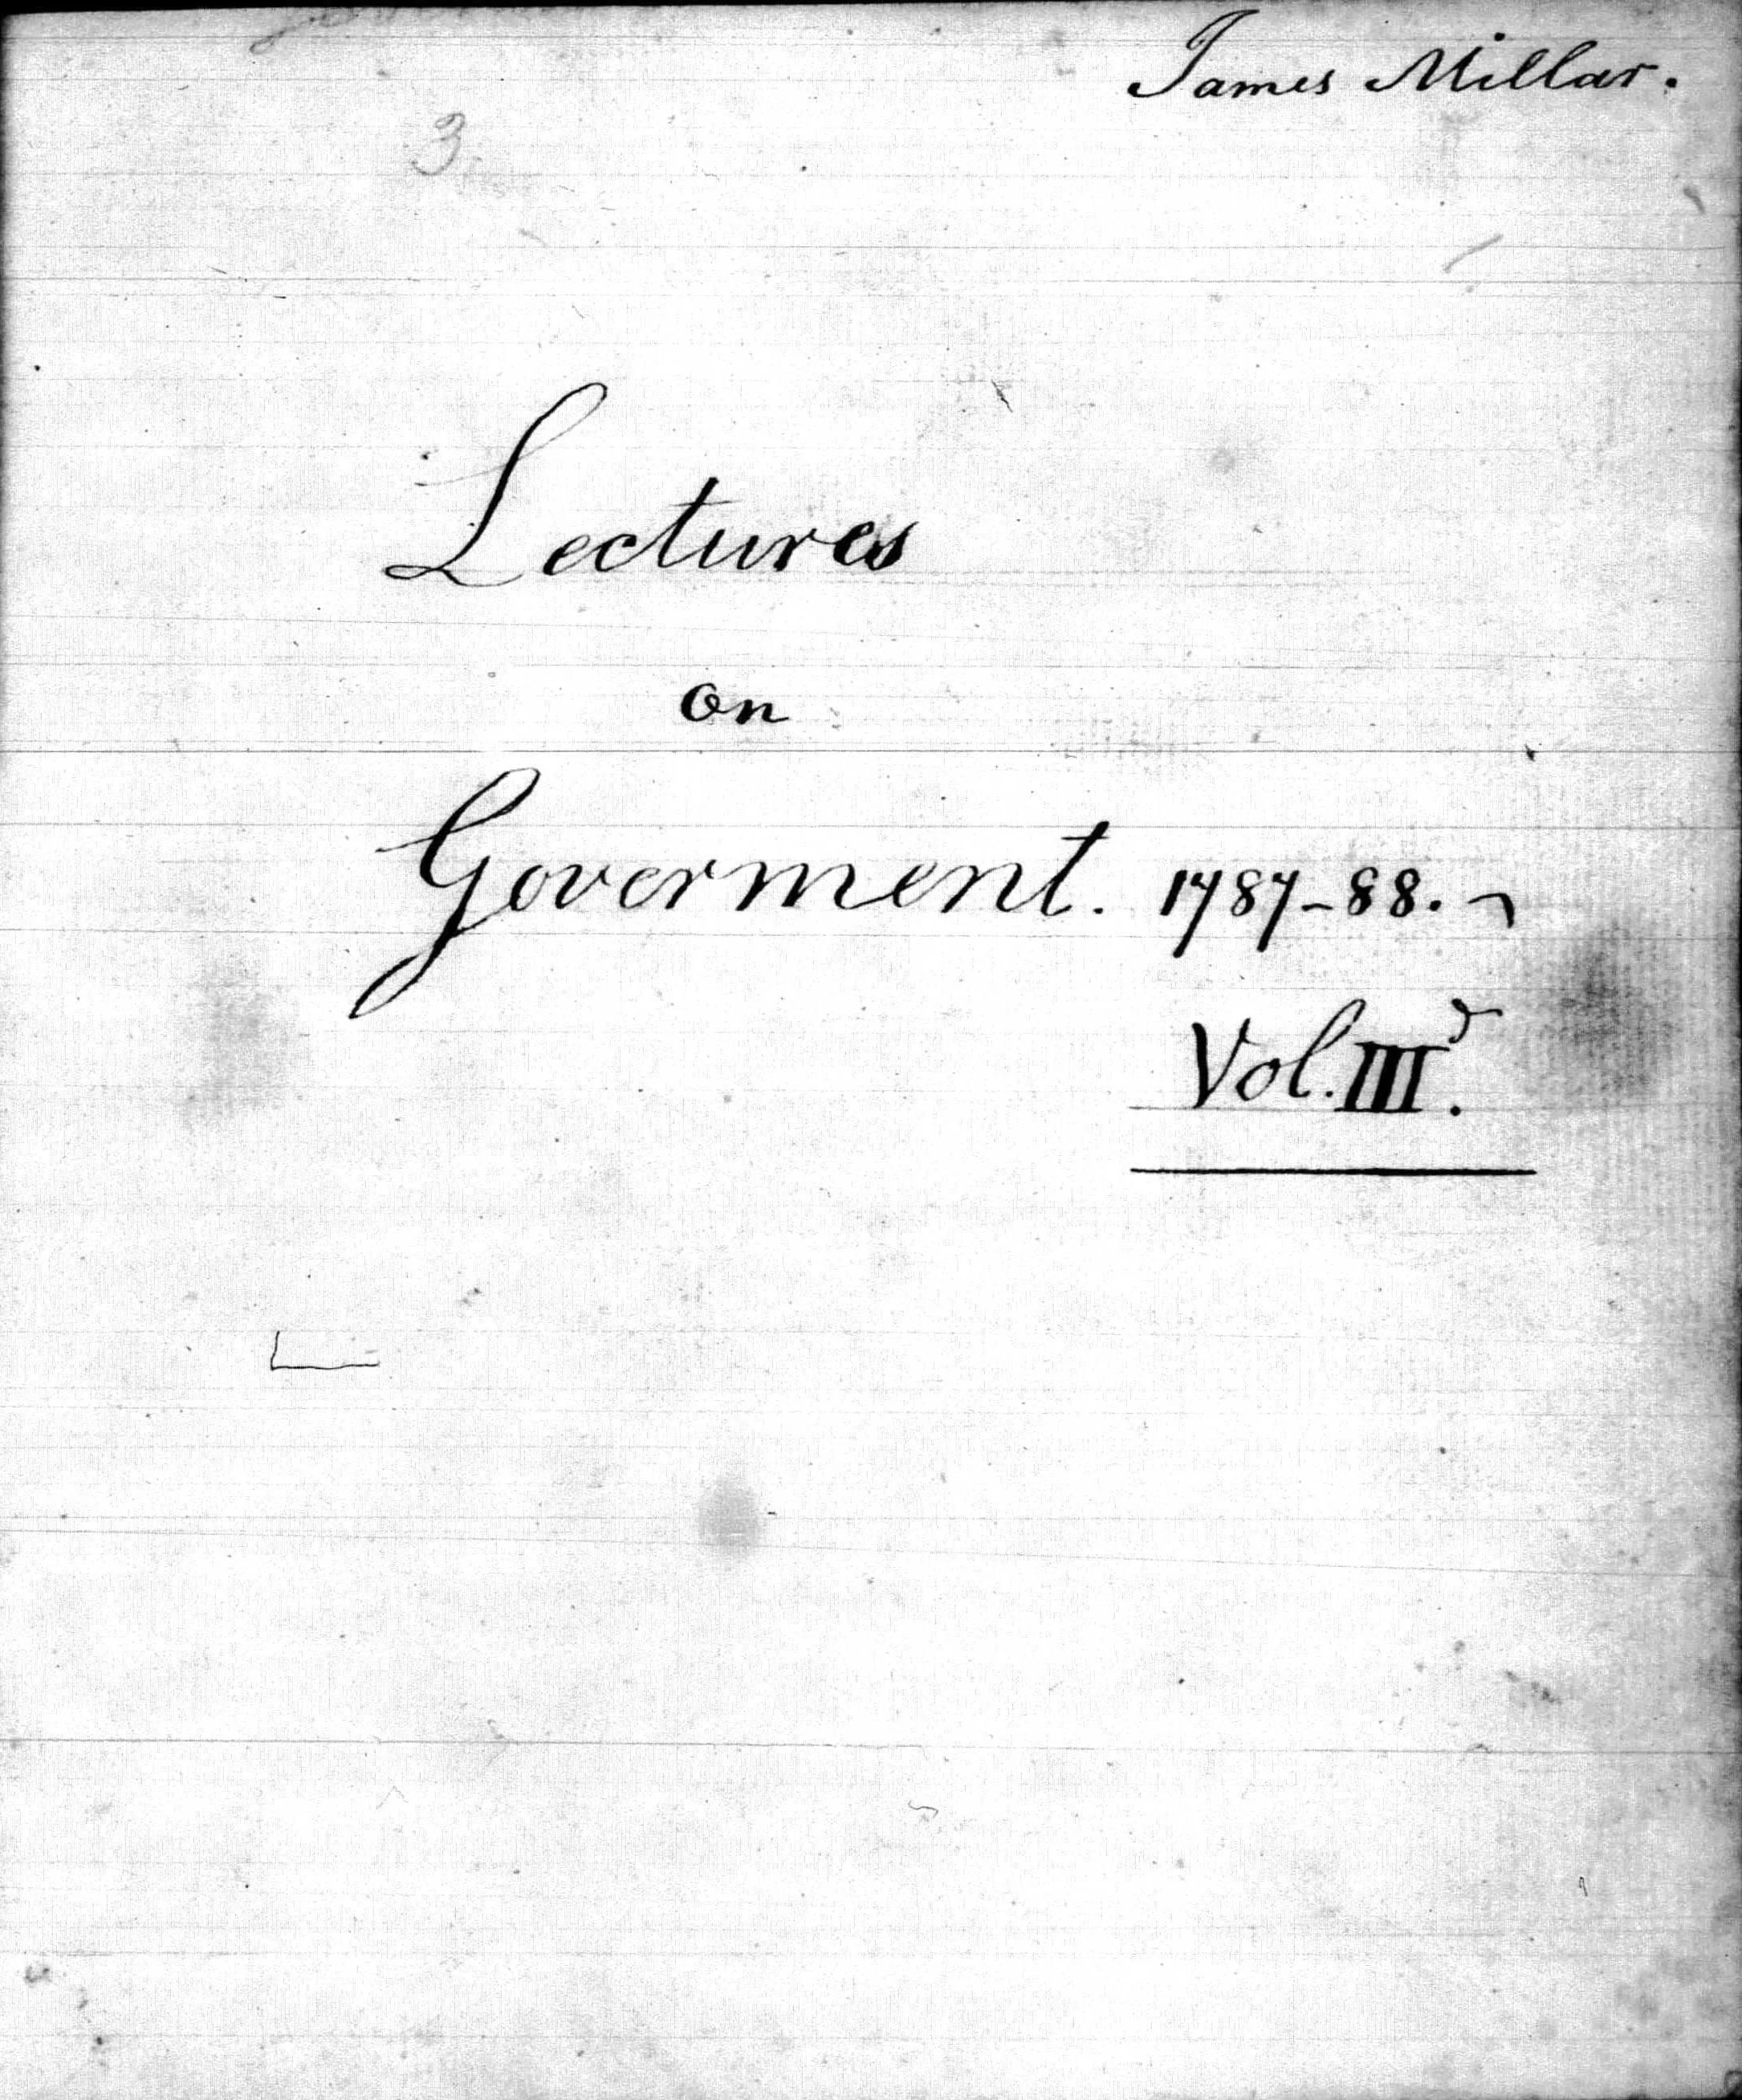 James Millar.
3
Lectures
on
Goverment. 1787-88.
Vol. III<sup>d</sup>.